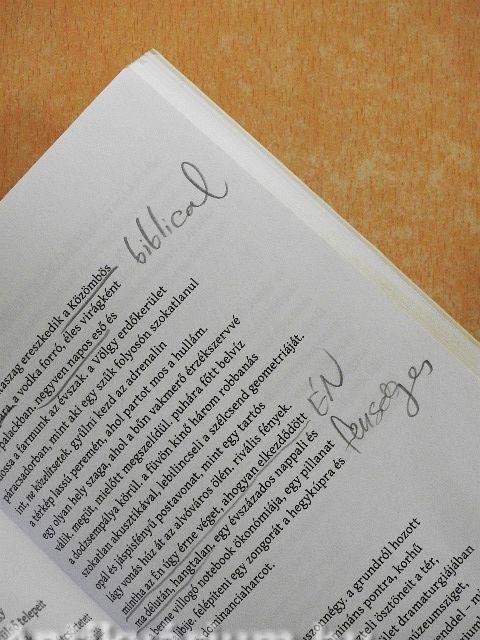 biblical
ÉN
fenséges
aszag ereszkedik a Közömbös
a vodka forró, éles virágként
palackban, negyven napos eső és
ossa a farmunk az évszak, a völgy erdőkerület
páracsadorban, mint aki egy szűk folyosón szokatlanul
int, ne közelítsetek, gyűlni kezd az adrenalin
a térkép lassú peremén, ahol partot mos a hullám.
egy olyan hely szaga, ahol a bőn vakmerő érzékszervvé
válik, megüt, mielőtt megszelídül, puhára főtt belvíz
a dodzsempálya körül, a füvön kinő három robbanás
szokatlan akusztikával, lebilincseli a szélcsend geometriáját.
opál és jáspisfényű postavonat, mint egy tartós
lágy vonás húz át az alvóváros ölén, rivális fények.
mintha az Én úgy érne véget, ahogyan elkezdődött
ma délután hangtalan, egy évszázados nappali és
benne villogó notebook ökonómiája, egy pillanat
felépíteni egy zongorát a hegykúpra és
dominanciaharcot.
nnégy, a grundról hozott
mináns pontra, korhű
ösztöneit a tér,
let dramaturgiájában
telepeit